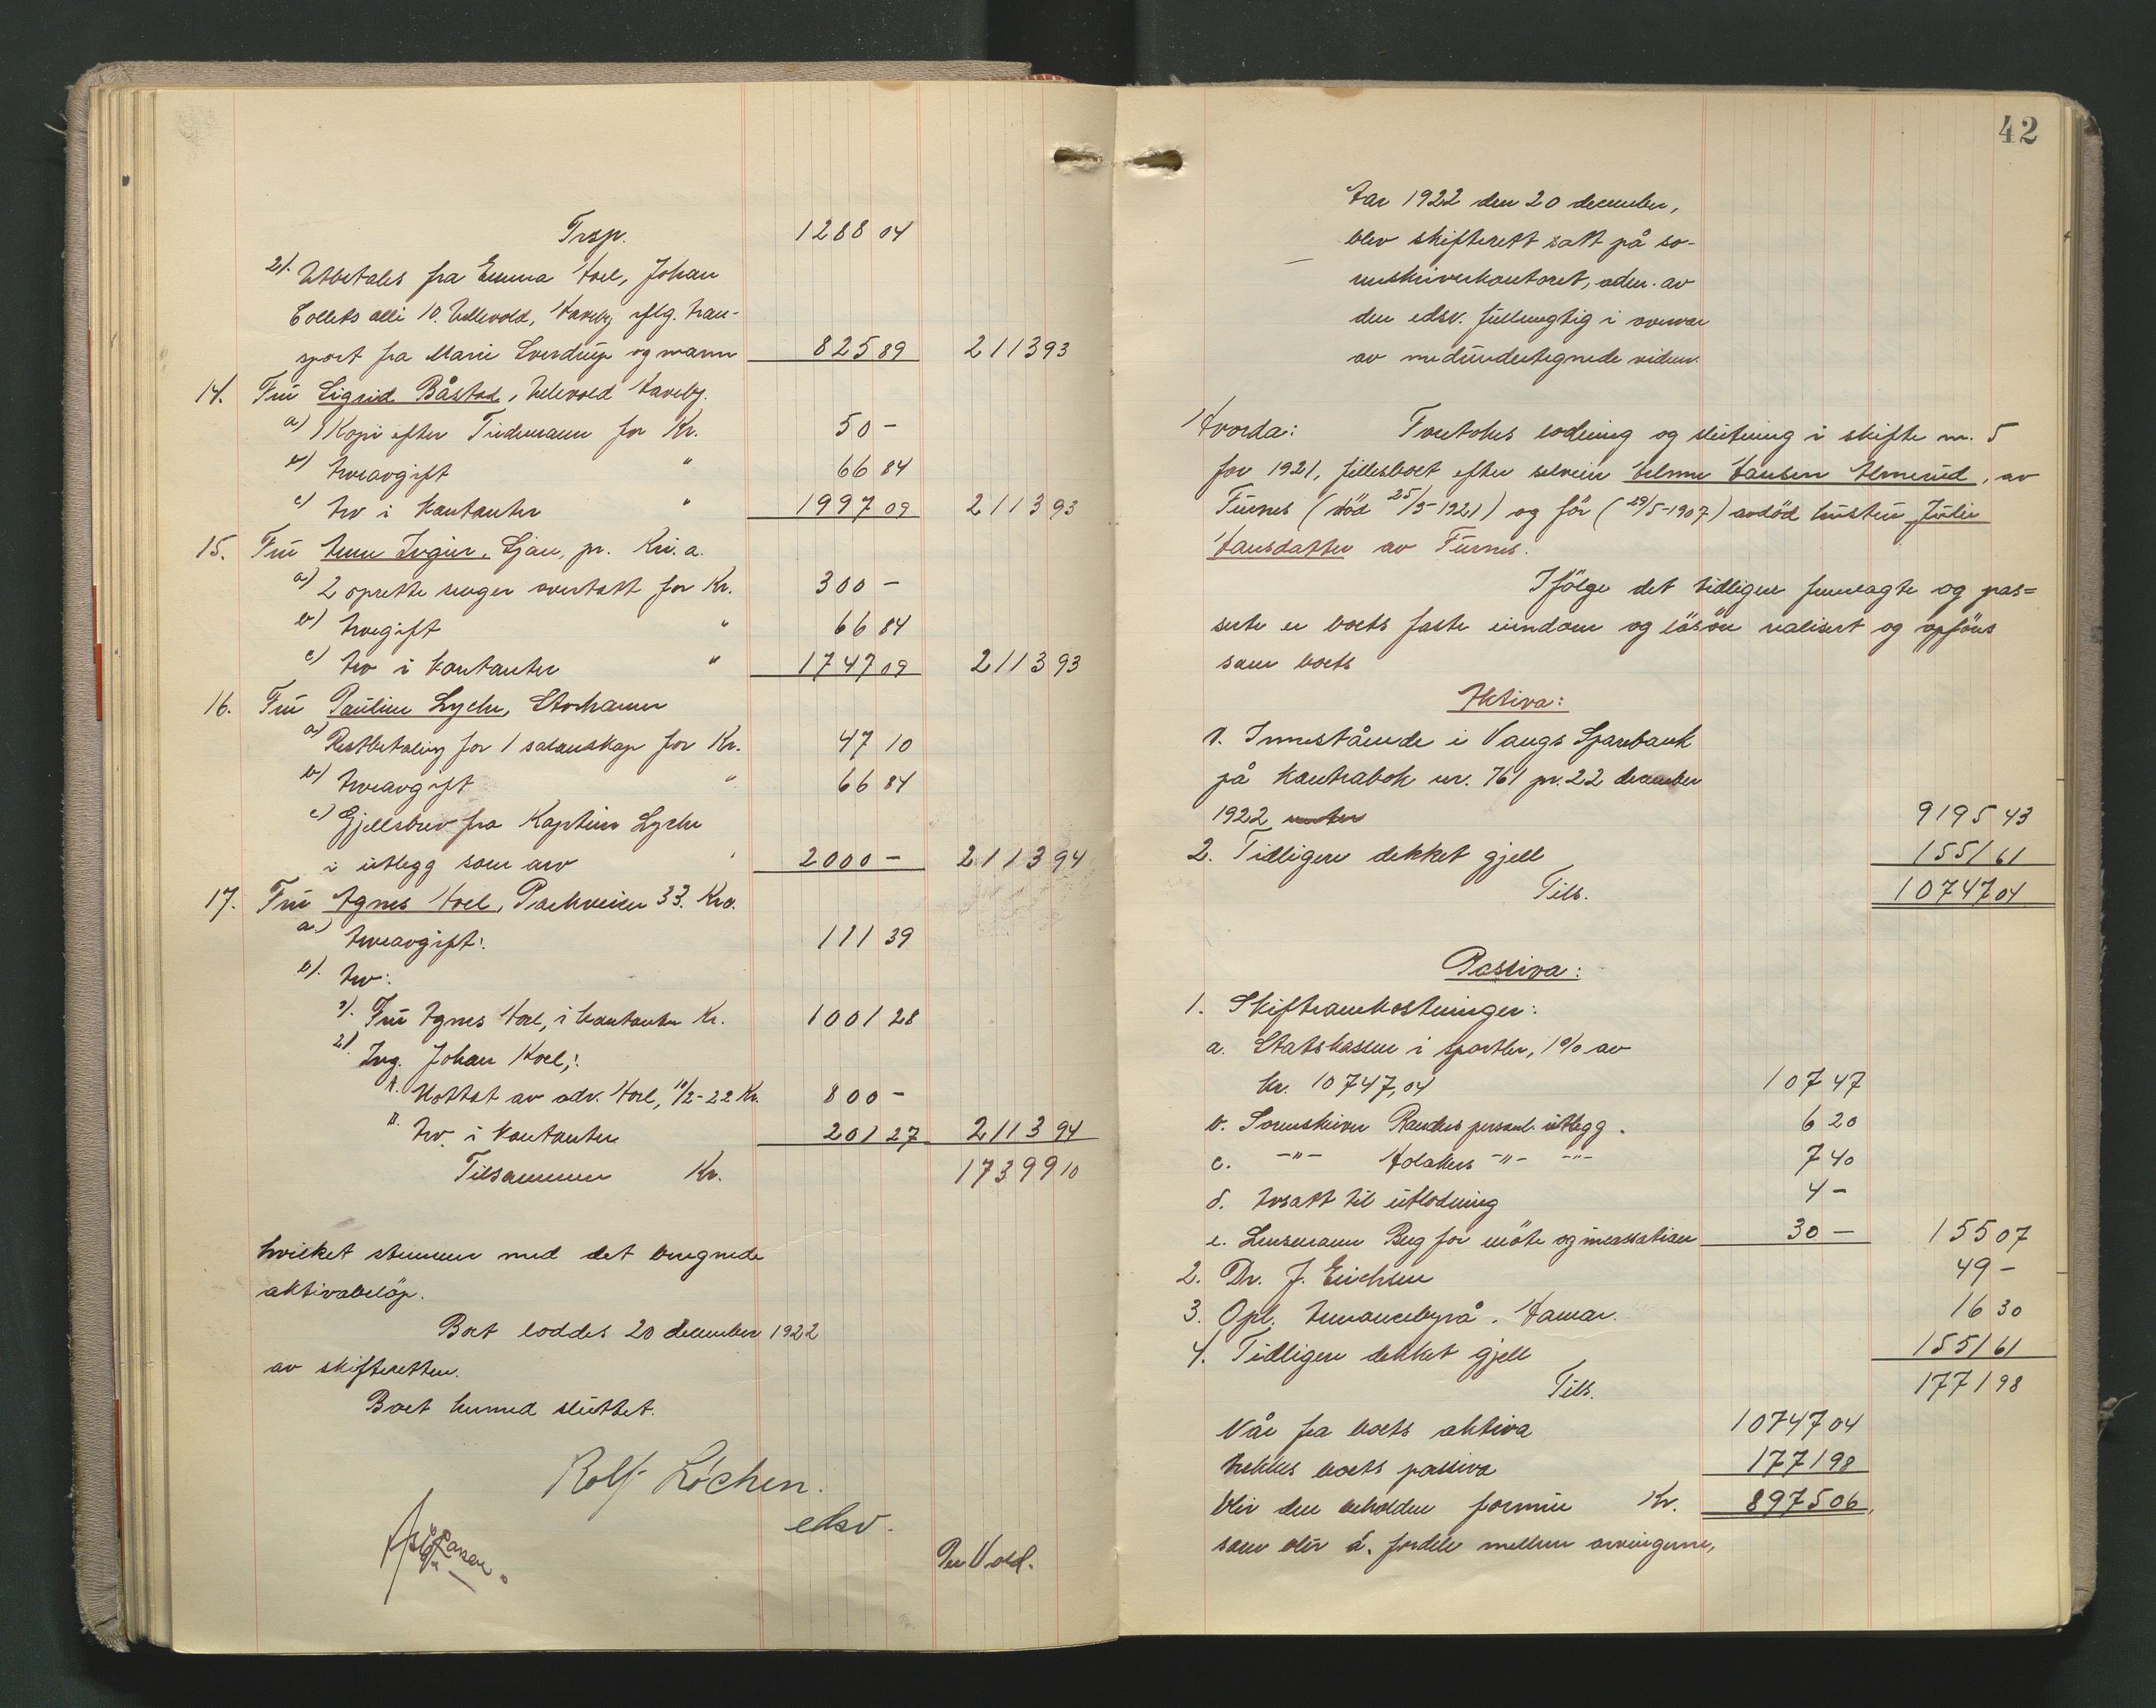 Trsp. 1288 04
2). Utbetales fra Emma Hoel, Johan
Collets alli 10. Ullevold, Haveby iflg. tran-
sport fra Marie Sverdrup og mann 825 89 2113 93
14. Frü Sigrid Båstad, Ullevold Haveby.
a) 1 Kopi efter Tidemann for Kr. 50 -
b) Arveavgift " 66 84
c) Arv i kontanter " 1997 09 2113 93
15. Frü Anna Ingier. Ljan, pr. Kri.a.
a) 2 oprette senger overtatt for Kr. 300 -
b) Arvegift " 66 84
c) Arv i kontanter " 1747 09 2113 93
16. Frü Pauline Lyche, Storhamar
a) Restbetaling for 1 salonskap for Kr. 47 10
b) Arveavgift " 66 84
c) Gjellsbrev fra Kaptein Lyche
i ütlegg som arv " 2000 - 2113 94
17. Frü Agnes Hoel, Parkveien 33. Kra.
a.) Arveavgift: 111 39
b). Arv:
1). Frü Agnes Hoel, i kontanter Kr. 1001 28
2). Ing. Johan Hoel,:
A. Mottat av adv. Hoel, 10/2-22 Kr. 800 -
B. Arv i kontanter 201 27 2113 94
Tilsammen Kr. 17399 10
hvilket stemmer med det beregnede
aktivabelöp.
Boet loddes 20 december 1922
av skifteretten.
Boet hermed slüttet.
Rolf Löchen.
edsv.
Per Vold.
42
Aar 1922 den 20 december,
blev skifterett satt på so-
renskriverkontoret, adm. av
den edsv. füllmegtig i overvær
av medündertegnede vidner.
Hvorda: Foretokes lodning og slütning i skifte nr. 5
for 1921, fellesboet efter selveier Helmer Hansen Almerüd, av
Fürnes (död 25/5-1921) og för (29/5-1907) avdöd hüstrü Jülie
Hansdatter av Fürnes.
Ifölge det tidligere fremlagte og pas=
serte er boets faste eiendom og lösöre realisert og opföres
som boets
Aktiva:
1. Innestående i Vangs Sparebank
på kontrabok nr. 761 pr. 22 december
1922 9195 43
2. Tidligere dekket gjell 1551 61
Tils. 10747 04
Passiva:
1. Skifteomkostninger:
a. Statskassen i sportler, 1% av
kr. 10747,04 107 47
b. Sorenskriver Randers personl. ütlegg. 6 20
c. -"- Holakers -"- -"- 7 40
d. Avsatt til ütlodning 4 -
e. Lensmann Berg for möte og incassation 30 - 155 07
2. Dr. J. Erichsen 49 -
3. Opl. Annoncebyrå. Hamar. 16 30
4. Tidligere dekket gjell 1551 61
Tils. 1771 98
Når fra boets aktiva 10747 04
trekkes boets passiva 1771 98
blir den beholdne formüe Kr. 8975 06,
som blir å. fordele mellem arvingerne,